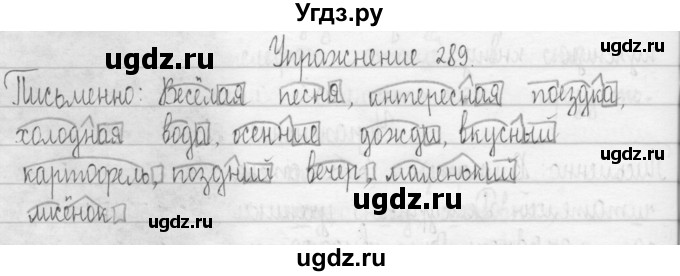 Угдз.ру
Упражнение 289.
Письменно: Весёлая песня, интересная поездка,
холодная вода, осенние дожди, вкусный
картофель, поздний вечер, маленький
лисёнок
ugdz.ru ugdz.ru
ugdz.ru ugdz.ru
ugdz.ru
ugdz.ru ugdz.ru
ugdz.ru